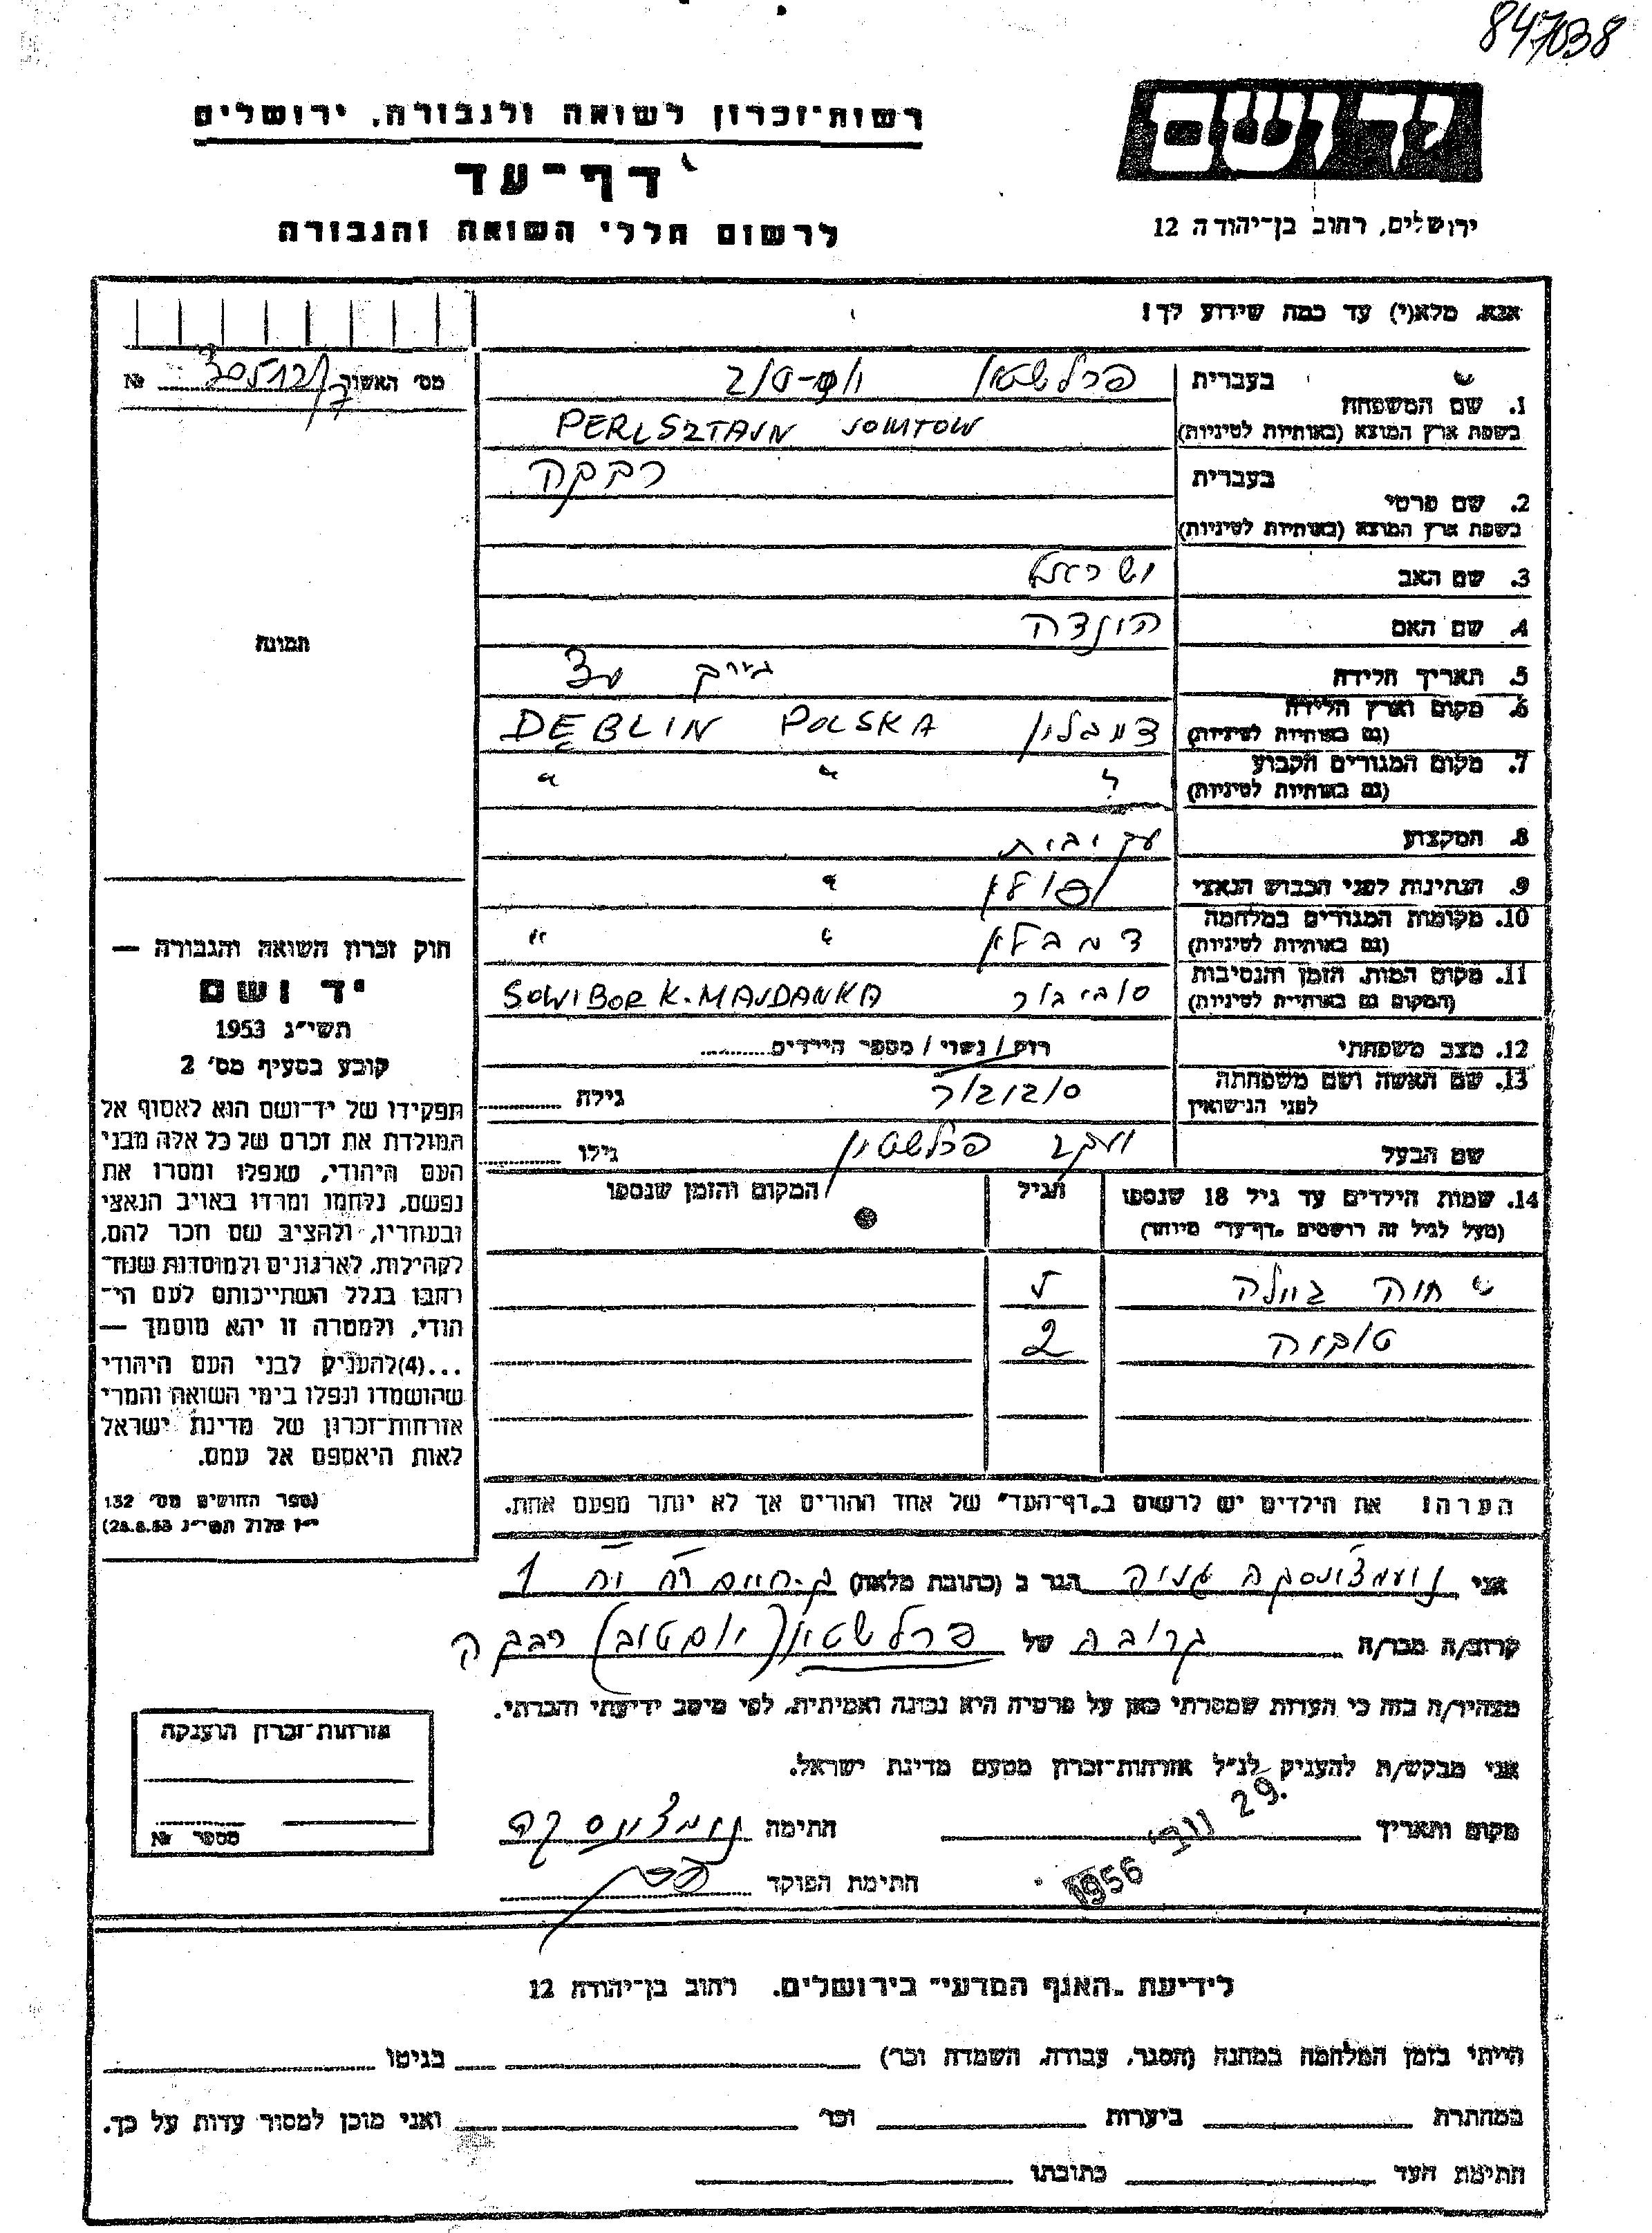 847038
יד ושם
רשות־זכרון לשואה ולגבורה, ירושלים
דף־עד
לרשום חללי השואה והגבורה
ירושלים, רחוב בן־יהודה 12
אנא, מלא(י) עד כמה שידוע לך!
מס׳ האשור №
1. שם המשפחה
בעברית פרלשטיין יום-טוב
בשפת ארץ המוצא (באותיות לטיניות) PERLSZTAJN JOMTOW
2. שם פרטי
בעברית רבקה
בשפת ארץ המוצא (באותיות לטיניות)
3. שם האב ישראל
4. שם האם הינדה
5. תאריך הלידה
6. מקום וארץ הלידה
(גם באותיות לטיניות) דמבלין POLSKA DĘBLIN
7. מקום המגורים הקבוע
(גם באותיות לטיניות) " "
8. המקצוע
9. הנתינות לפני הכבוש הנאצי
10. מקומות המגורים במלחמה
(גם באותיות לטיניות) דמבלין " "
11. מקום המות, הזמן והנסיבות
(המקום גם באותיות לטיניות) סוביבור SOWIBOR K. MAJDANKA
12. מצב משפחתי רווק / נשוי / מספר הילדים
13. שם האשה ושם משפחתה
לפני הנישואין גילה
שם הבעל יעקב פרלשטיין גילו
14. שמות הילדים עד גיל 18 שנספו הגיל המקום והזמן שנספו
(מעל לגיל זה רושמים „דף־עד״ מיוחד)
חוה 5
טובה 2
הערה! את הילדים יש לרשום ב„דף־העד״ של אחד ההורים אך לא יותר מפעם אחת.
תמונה
חוק זכרון השואה והגבורה —
יד ושם
תשי״ג 1953
קובע בסעיף מס׳ 2
תפקידו של יד־ושם הוא לאסוף אל
המולדת את זכרם של כל אלה מבני
העם היהודי, שנפלו ומסרו את
נפשם, נלחמו ומרדו באויב הנאצי
ובעוזריו, ולהציב שם וזכר להם,
לקהילות, לארגונים ולמוסדות שנח־
רבו בגלל השתייכותם לעם הי־
הודי, ולמטרה זו יהא מוסמך —
...(4)להעניק לבני העם היהודי
שהושמדו ונפלו בימי השואה והמרי
אזרחות־זכרון של מדינת ישראל
לאות היאספם אל עמם.
(ספר החוקים מס׳ 132
י״ז אלול תשי״ג 28.8.53)
אני הגר ב (כתובת מלאה)
קרוב/ה מכר/ה קרובה של פרלשטיין (יום טוב) רבקה
מצהיר/ה בזה כי העדות שמסרתי כאן על פרטיה היא נכונה ואמיתית, לפי מיטב ידיעתי והכרתי.
אני מבקש/ת להעניק לנ״ל אזרחות־זכרון מטעם מדינת ישראל.
מקום ותאריך 29. נוב׳ 1956 חתימה
חתימת הפוקד
אזרחות־זכרון הוענקה
מספר №
לידיעת „האגף המדעי״ בירושלים. רחוב בן־יהודה 12
הייתי בזמן המלחמה במחנה (הסגר, עבודה, השמדה וכו׳) בגיטו
במחתרת ביערות וכו׳ ואני מוכן למסור עדות על כך.
חתימת העד כתובתו